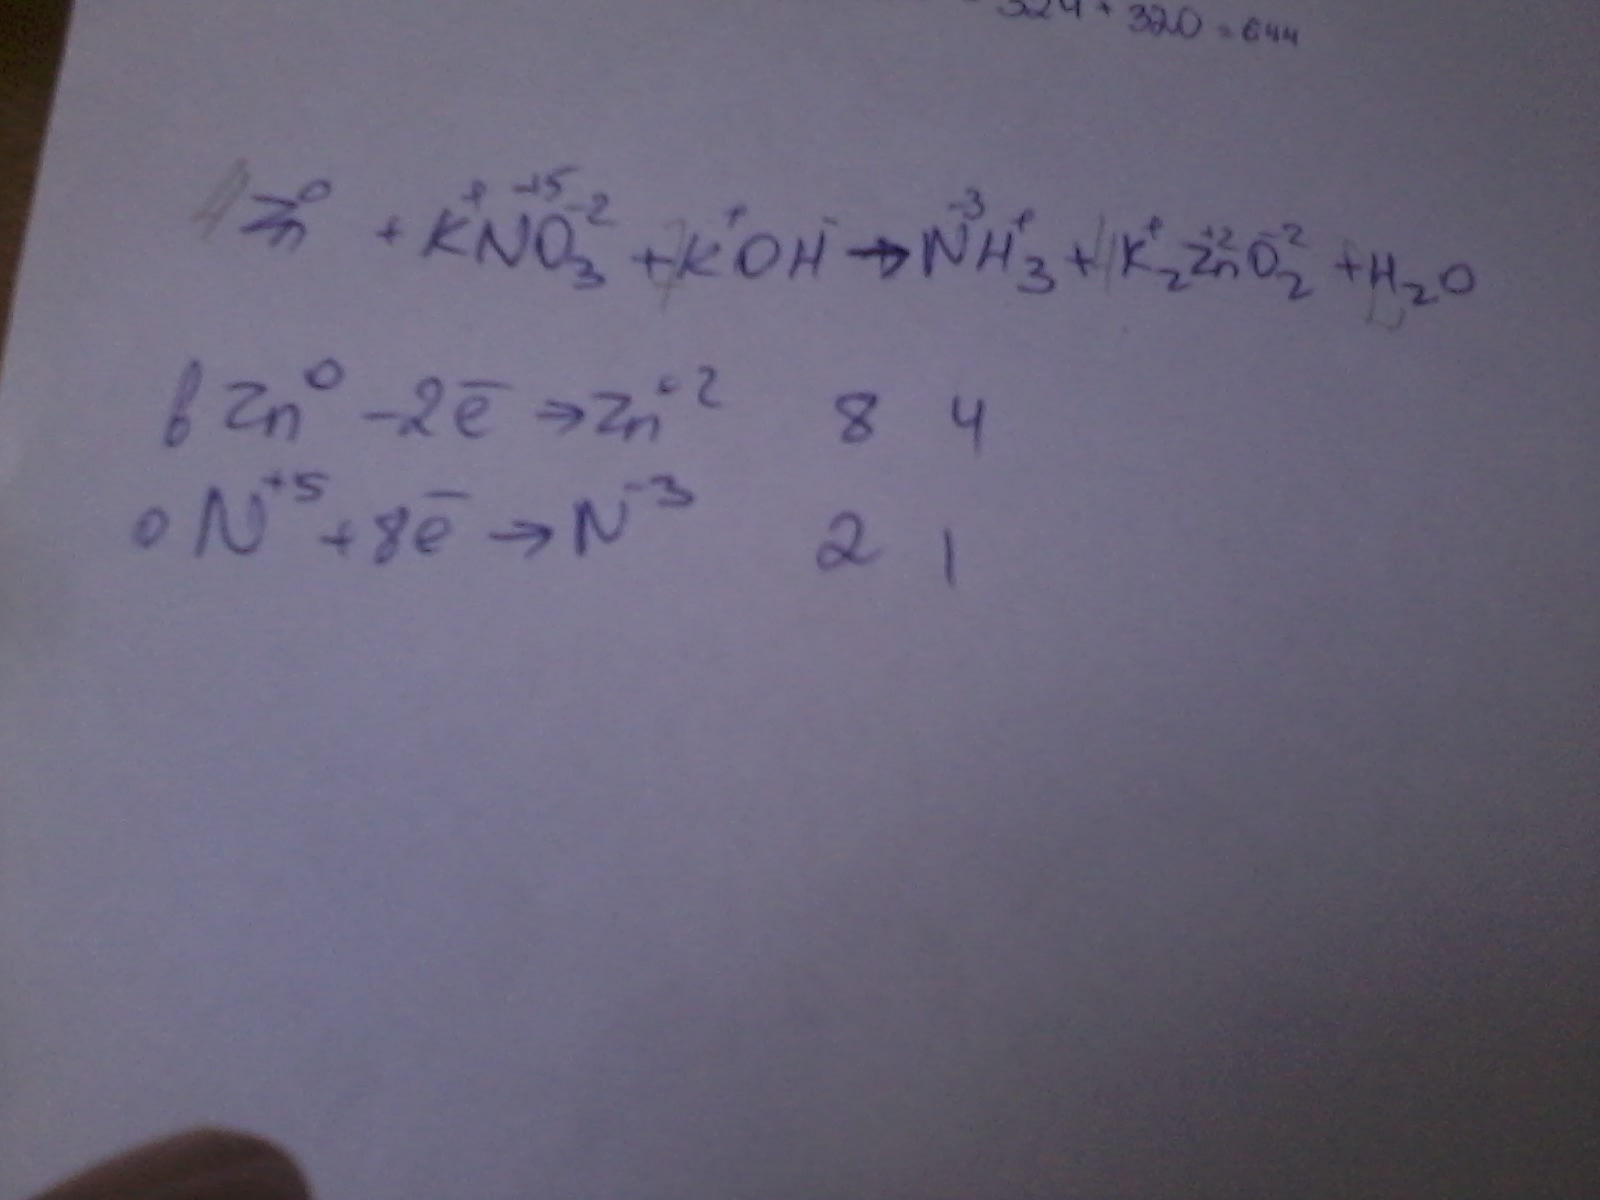 324 + 320 = 644
4 Zn⁰ + K⁺N⁺⁵O₃⁻² + 7K⁺OH⁻ → N⁻³H₃⁺ + 4K₂⁺Zn⁺²O₂⁻² + H₂O
в Zn⁰ - 2e̅ → Zn⁺² 8 4
о N⁺⁵ + 8e̅ → N⁻³ 2 1